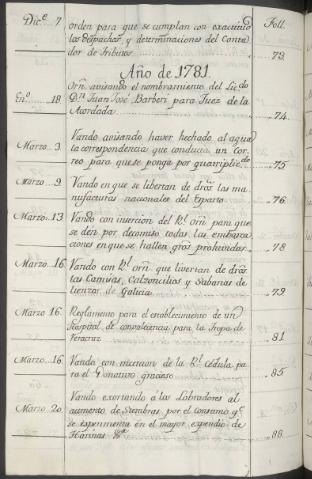 Dic.e 7 orden para que se cumplan con exactitud Foll.
los Despachos, y determinaciones del Conta
dor de Tributos 73
Año de 1781
Orn. avisando el nombramiento del Lic.do
En.o 18 D.n Juan José Barberi para Juez de la
Acordada 74
Marzo 3 Vando avisando haver hechado al agua
la correspondencia que conducia un Cor
reo para que se ponga por quadriplic.do 75
Marzo 9 Vando en que se libertan de dros. las ma
nufacturas nacionales del Esparto 76
Marzo 13 Vando con insercion del R.l Orn. para que
se den por decomiso todas las embarca
ciones en que se hallen gros. prohividos 78
Marzo 16 Vando con R.l orn. que livertan de dros.
las Camisas, Calzoncillos y Sabanas de
lienzos de Galicia 79
Marzo 16 Reglamento para el establecimiento de un
Hospital de convalecencia para la Tropa de
Veracruz 81
Marzo 16 Vando con insercion de la R.l Cedula pa
ra el Donativo gracioso 85
Marzo 20 Vando exortando á los Labradores al
aumento de Siembras por el consumo q.e
se experimenta en el mayor expendio de
Harinas &a 88